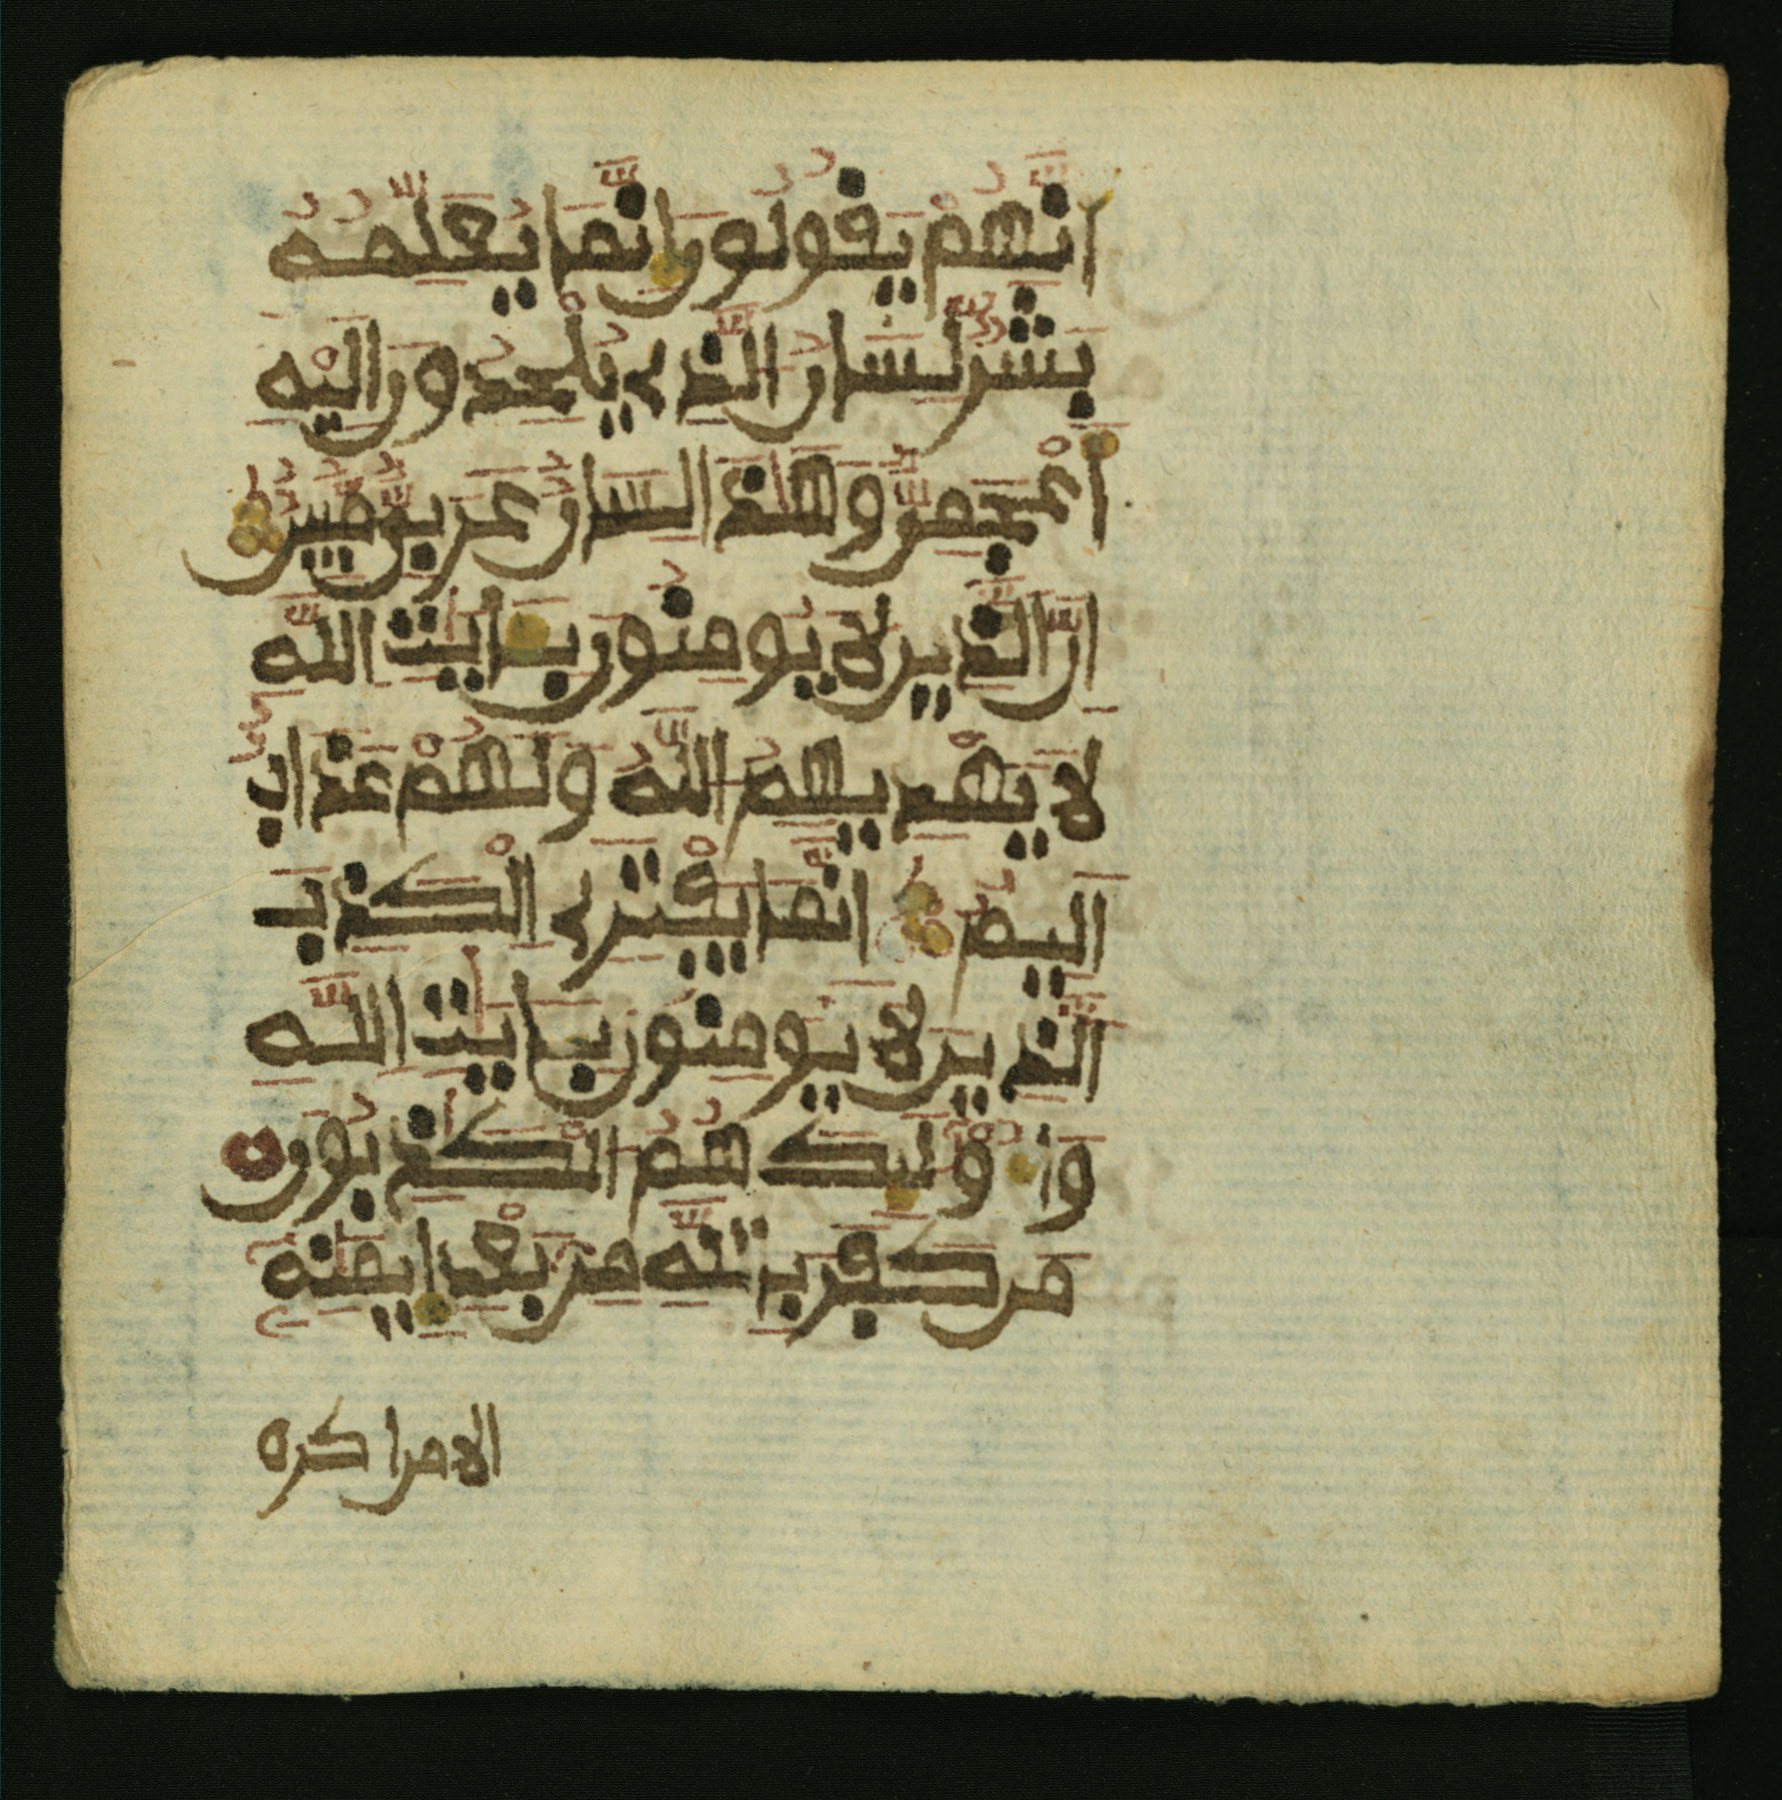 انَّهُمْ يَفُولُونَ إنَّمَا يُعَلِّمُهُ
بَشَرٌ لِّسَانُ الَّذِے يُلْحِدُونَ إلَيْهِ
أعْجَمِيٌّ وَهَٰذَا لِسَانٌ عَرَبِيٌّ مُّبِينٌ
انَّ الَّذِينَ لَا يُومِنُونَ بِـَٔايَٰتِ اللَّهِ
لَا يَهْدِيهِمُ اللَّهُ وَلَهُمْ عَذَابٌ
الِيمٌ انَّمَا يَفْتَرِے الْكَذِبَ
الَّذِينَ لَا يُومِنُونَ بِـَٔايَٰتِ اللَّهِ
وَأُوْلَٰٓئِكَ هُمُ الْكَٰذِبُونَ
مَن كَفَرَ بِاللَّهِ مِنۢ بَعْدِ إيمَٰنِهِۦٓ
الامن اكره